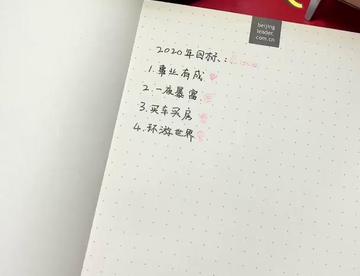 beijing
leader.
com.cn
2020年目标：
1.事业有成
2.一夜暴富
3.买车买房
4.环游世界